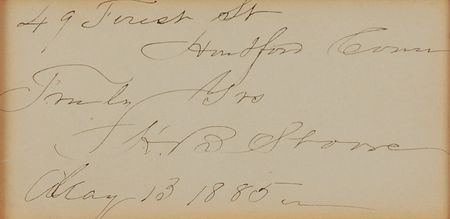 49 Forest St
Hartford Conn
Truly Yrs
H. B Stowe
May 13 1885